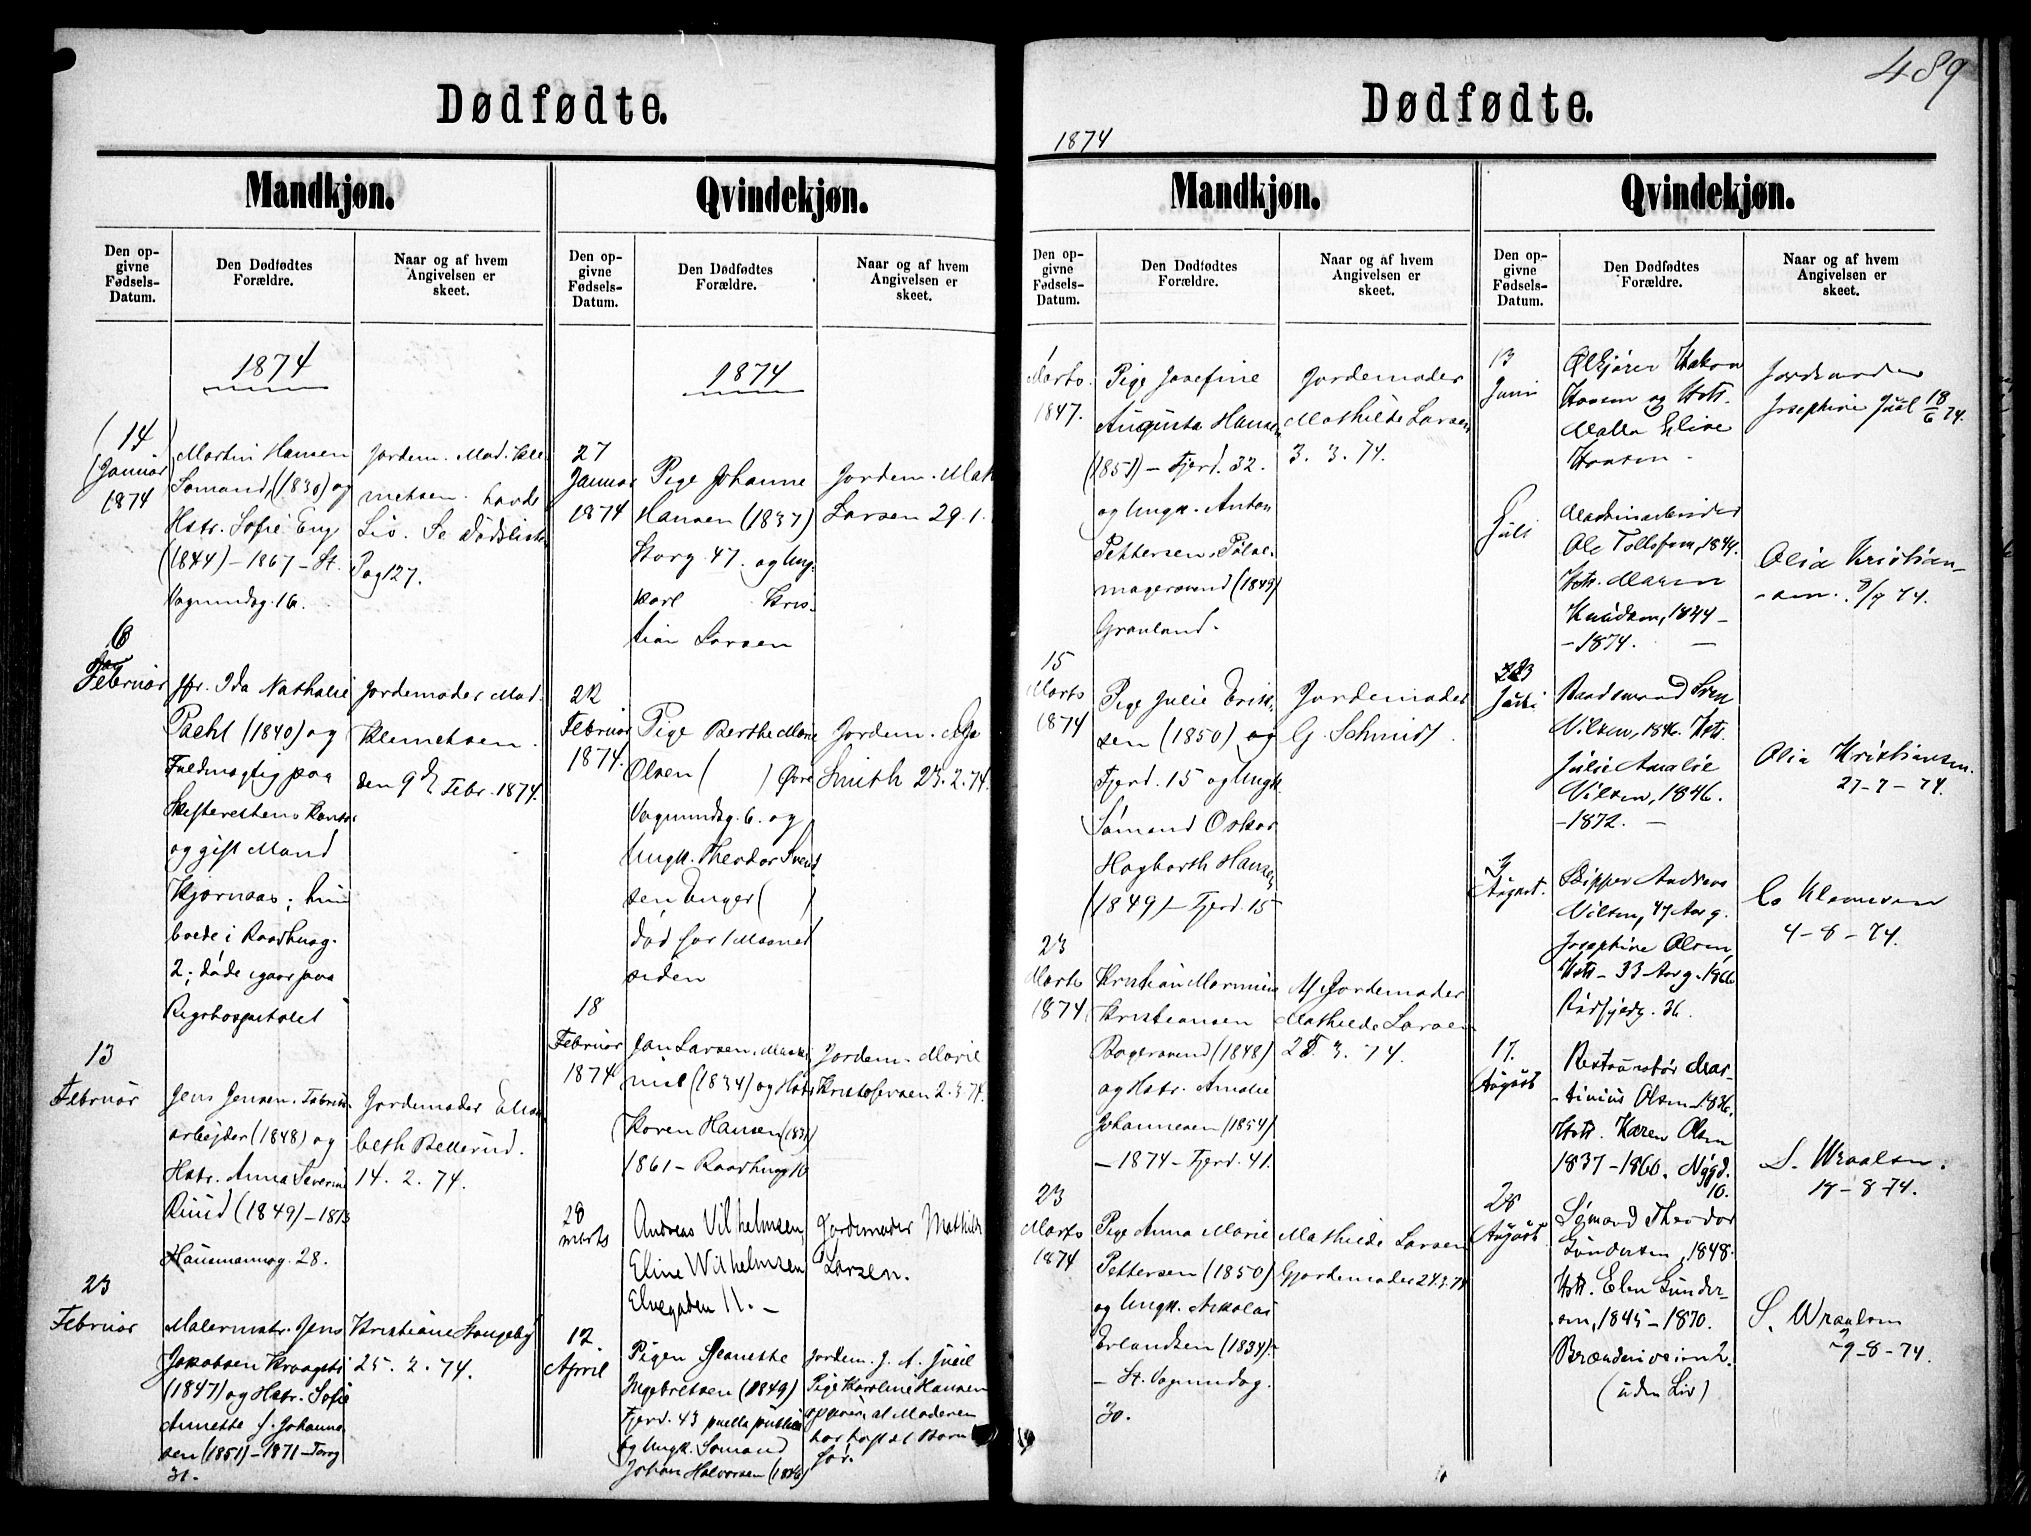 Dødfødte.
Mandkjøn.
Den op-
givne
Fødsels-
Datum.
Den Dødfødtes
Forældre.
Naar og af hvem
Angivelsen er
skeet.
1874
14
Januar
1874
Martin Hansen
Sømand, (1830) og
Hstr. Sofie Eng
(1844) – 1867 – St.
Vognmdsg. 16.
Jordem. Mad. Kle
metsen. havde
Liv. Se Dødslisten
Pag 127.
6
Februar
Jfr. Ida Nathalie
Paehl (1840) og
Fuldmægtig paa
Skifterettens Kontor
og gift Mand
Kjørnaas; hun
boede i Raadhusg.
2; døde igaar paa
Rigshospitalet
Jordemoder Mad.
Klemetsen.
den 9de Febr. 1874.
13
Februar
Jens Jensen. Fabrik-
arbejder (1848) og
Hstr. Anna Severine
Ruud (1849) – 1873
Hausmannsg. 28.
Jordemoder Elisa
beth Bellerud.
14. 2. 74.
23
Februar
Malermstr. Jens
Jakobsen
(1847) og Hstr. Sofie
Annette f. Johanne
sen (1851) – 1871 – Torvg
31.
Kristiane Stangeby
25. 2. 74.
Qvindekjøn.
Den op-
givne
Fødsels-
Datum.
Den Dødfødtes
Forældre.
Naar og af hvem
Angivelsen er
skeet.
1874
27
Januar
1874
Pige Johanne
Hansen (1837)
Storg. 47. og Ung-
karl Kris-
tian Larsen
Jordem. Math
Larsen 29. 1.
22
Februar
1874.
Pige Berthe Marie
Olsen ( ) Øvre
Vognmdsg. 6. og
Ungk. Theodor Svend
sen Enger ( )
død for 1 Maaned
siden
Jordem.
Smith 23. 2. 74.
18
Februar
1874
Jan Larsen. Maski
nist (1834) og Hstr
Karen Hansen (183 )
1861 – Raadhusg 10
Jordem. Marie
Kristofersen 2. 3. 74.
28
marts
Andreas Vilhelmsen
Eline Wilhelmsen
Elvegaden 11. –
Jordemoder Mathilde
Larsen.
12.
April
Pigen Jeanette
Ingebretsen (1849)
Fjerd. 43 puella publica
og Ungk. Sømand
Johan Halvorsen (1846)
Jordem. J. A. Juell
Pige Karoline Hansen
opgiver, at Moderen
har havt et Barn
før.
Dødfødte.
489
1874
Mandkjøn.
Den op-
givne
Fødsels-
Datum.
Den Dødfødtes
Forældre.
Naar og af hvem
Angivelsen er
skeet.
1
Marts
1847.
Pige Josefine
Augusta Hansen
(1851) – Fjerd. 32.
og Ungk. Anton
Pettersen. Pølse-
magersvend (1849)
Grønland.
Jordemoder
Mathilde Larsen
3. 3. 74.
15
Marts
1874
Pige Julie Erik-
sen (1850) og
Fjerd. 15 og Ungk
Sømand Oskar
Hagbarth Hansen
(1849) – Fjerd. 15
Jordemoder
G. Schmidt.
23
Marts
1874
Kristian Marinius
Kristiansen
Bagersvend (1848)
og Hstr. Amalie
Johannesen (1854)
– 1874 – Fjerd. 41.
Jordemoder
Mathilde Larsen
25. 3. 74.
23
Marts
1874
Pige Anna Marie
Pettersen (1850)
og Ungk. Nikolai
Erlandsen (1834).
– St. Vognmdsg.
30.
Mathilde Larsen
Gjordemoder 24.3.74
Qvindekjøn.
Den op-
givne
Fødsels-
Datum.
Den Dødfødtes
Forældre.
Naar og af hvem
Angivelsen er
skeet.
13
Juni
Ølkjører Hakon
Hansen og Hstr.
Malla Elise
Hansen.
Jordemoder
Josephine Juel 18/6 74.
7
Juli
Maskinarbeider
Ole Tollefsen, 1849.
Hstr. Maren
Knudsen, 1844 –
– 1874. –
Olia Kristian-
sen. 8/7 74.
23
Juli
Baadsmand Sven
Nilsen, 1846. Hstr.
Julie Amalie
Nilsen, 1846.
– 1872. –
Olia Kristiansen.
27–7–74.
3
August.
Skipper Andreas
Nilsen, 47 Aar g.
Josephine Olsen,
Hstr – 33 Aar g. – 1866
Rødfyldg. 36.
C. Klemetsen
4–8–74.
17.
August
Restauratør Mar-
tinius Olsen – 1836.
Hstr. Karen Olsen
1837 – 1860. Nygd.
10.
S. Wraalsen.
19–8–74.
28
August
Sømand Theodor
Gundersen, 1848.
Hstr. Elen Gunder-
sen, 1845 – 1870.
Brænderiveien 2.
(uden Liv)
S. Wraalsen
29–8–74.